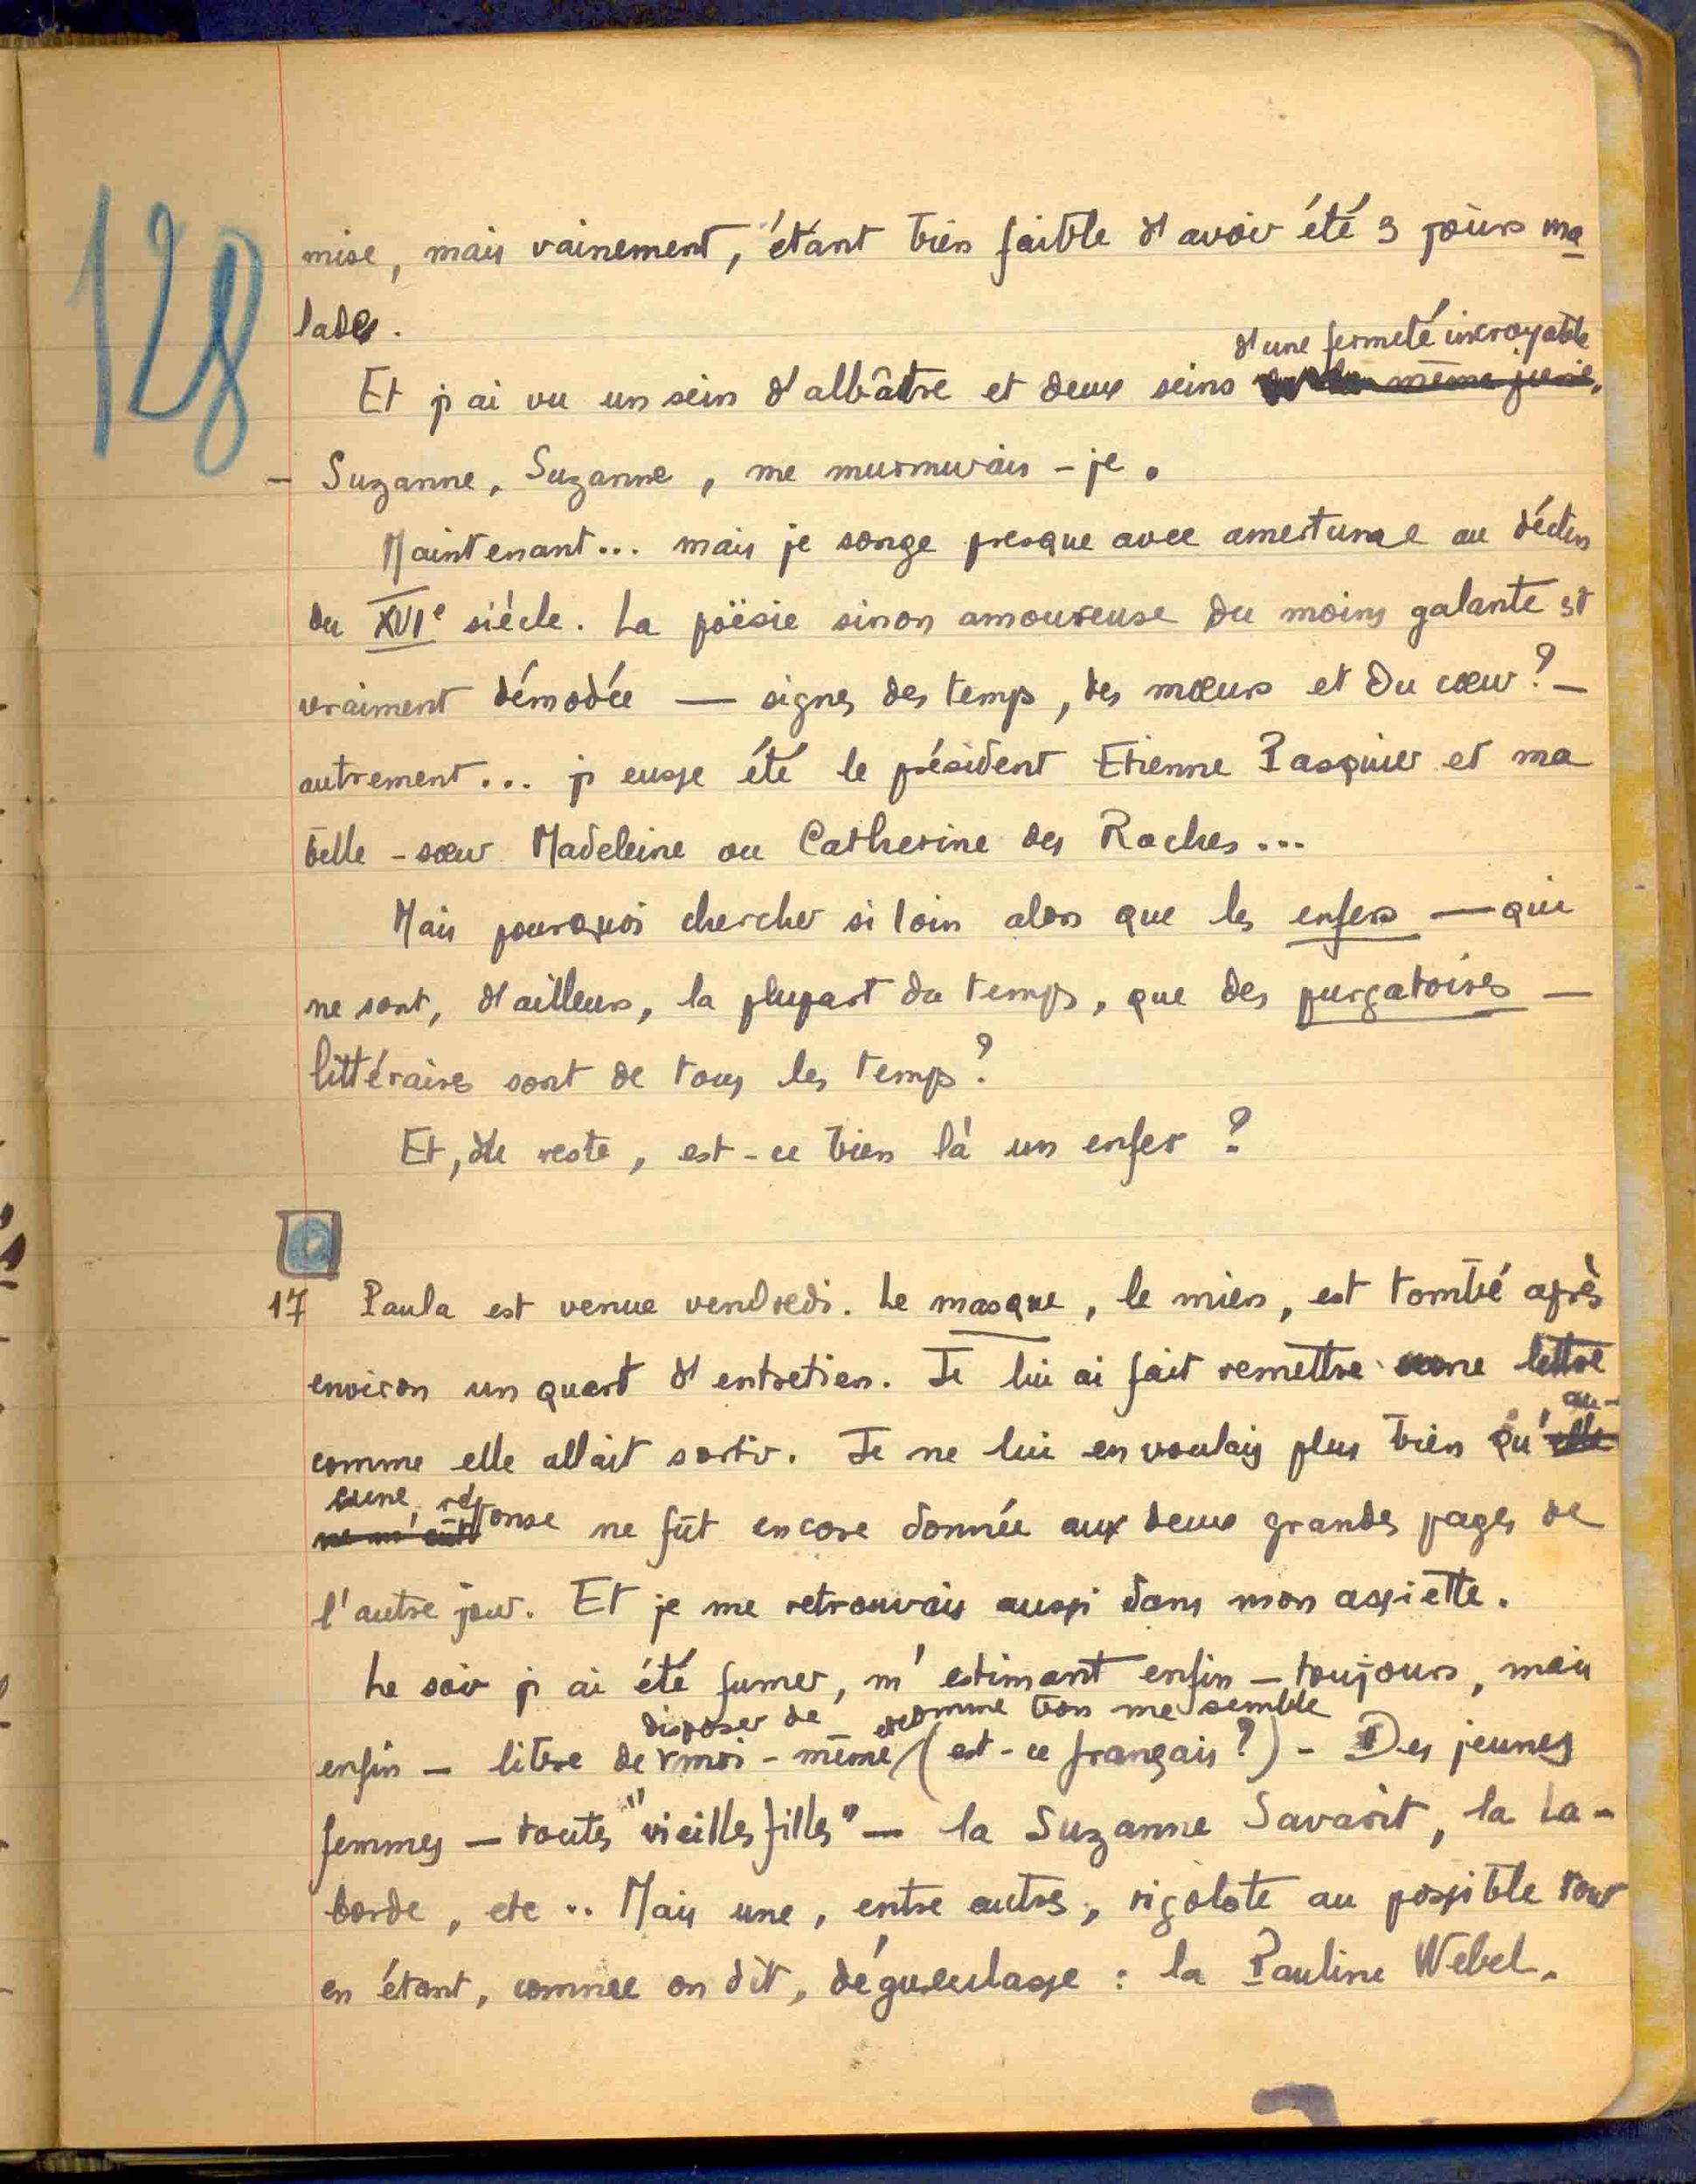 128
mise, mais vainement, étant bien faible d'avoir été 3 jours ma
lade.
d'une fermeté incroyable
Et j'ai vu un sein d'albâtre et deux seins même
- Suzanne, Suzanne, me murmurais-je.
Maintenant... mais je songe presque avec amertume au déclin
du XVIe siècle. La poësie sinon amoureuse du moins galante est
vraiment démodée — signes des temps, des mœurs et du cœur? —
autrement... j'eusse été le président Etienne Pasquier et ma
belle-sœur Madeleine ou Catherine des Roches...
Mais pourquoi chercher si loin alors que les enfers — qui
ne sont, d'ailleurs, la plupart du temps, que des purgatoires —
littéraires sont de tous les temps?
Et, de reste, est-ce bien là un enfer?
17 Paula est venue vendredi. Le masque, le mien, est tombé après
environ un quart d'entretien. Je lui ai fait remettre une lettre
au-
comme elle allait sortir. Je ne lui en voulais plus bien qu'elle
cune ré
ne m'eût ponse ne fût encore donnée aux deux grandes pages de
l'autre jour. Et je me retrouvais aussi dans mon assiette.
Le soir j'ai été fumer, m'estimant enfin — toujours, mais
disposer de comme bon me semble
enfin — libre de moi-même (est-ce français?) - Des jeunes
femmes — toutes "vieilles filles" — la Suzanne Savarit, la La-
borde, etc.. Mais une, entre autres, rigolote au possible tout
en étant, comme on dit, dégueulasse : la Pauline Webel.